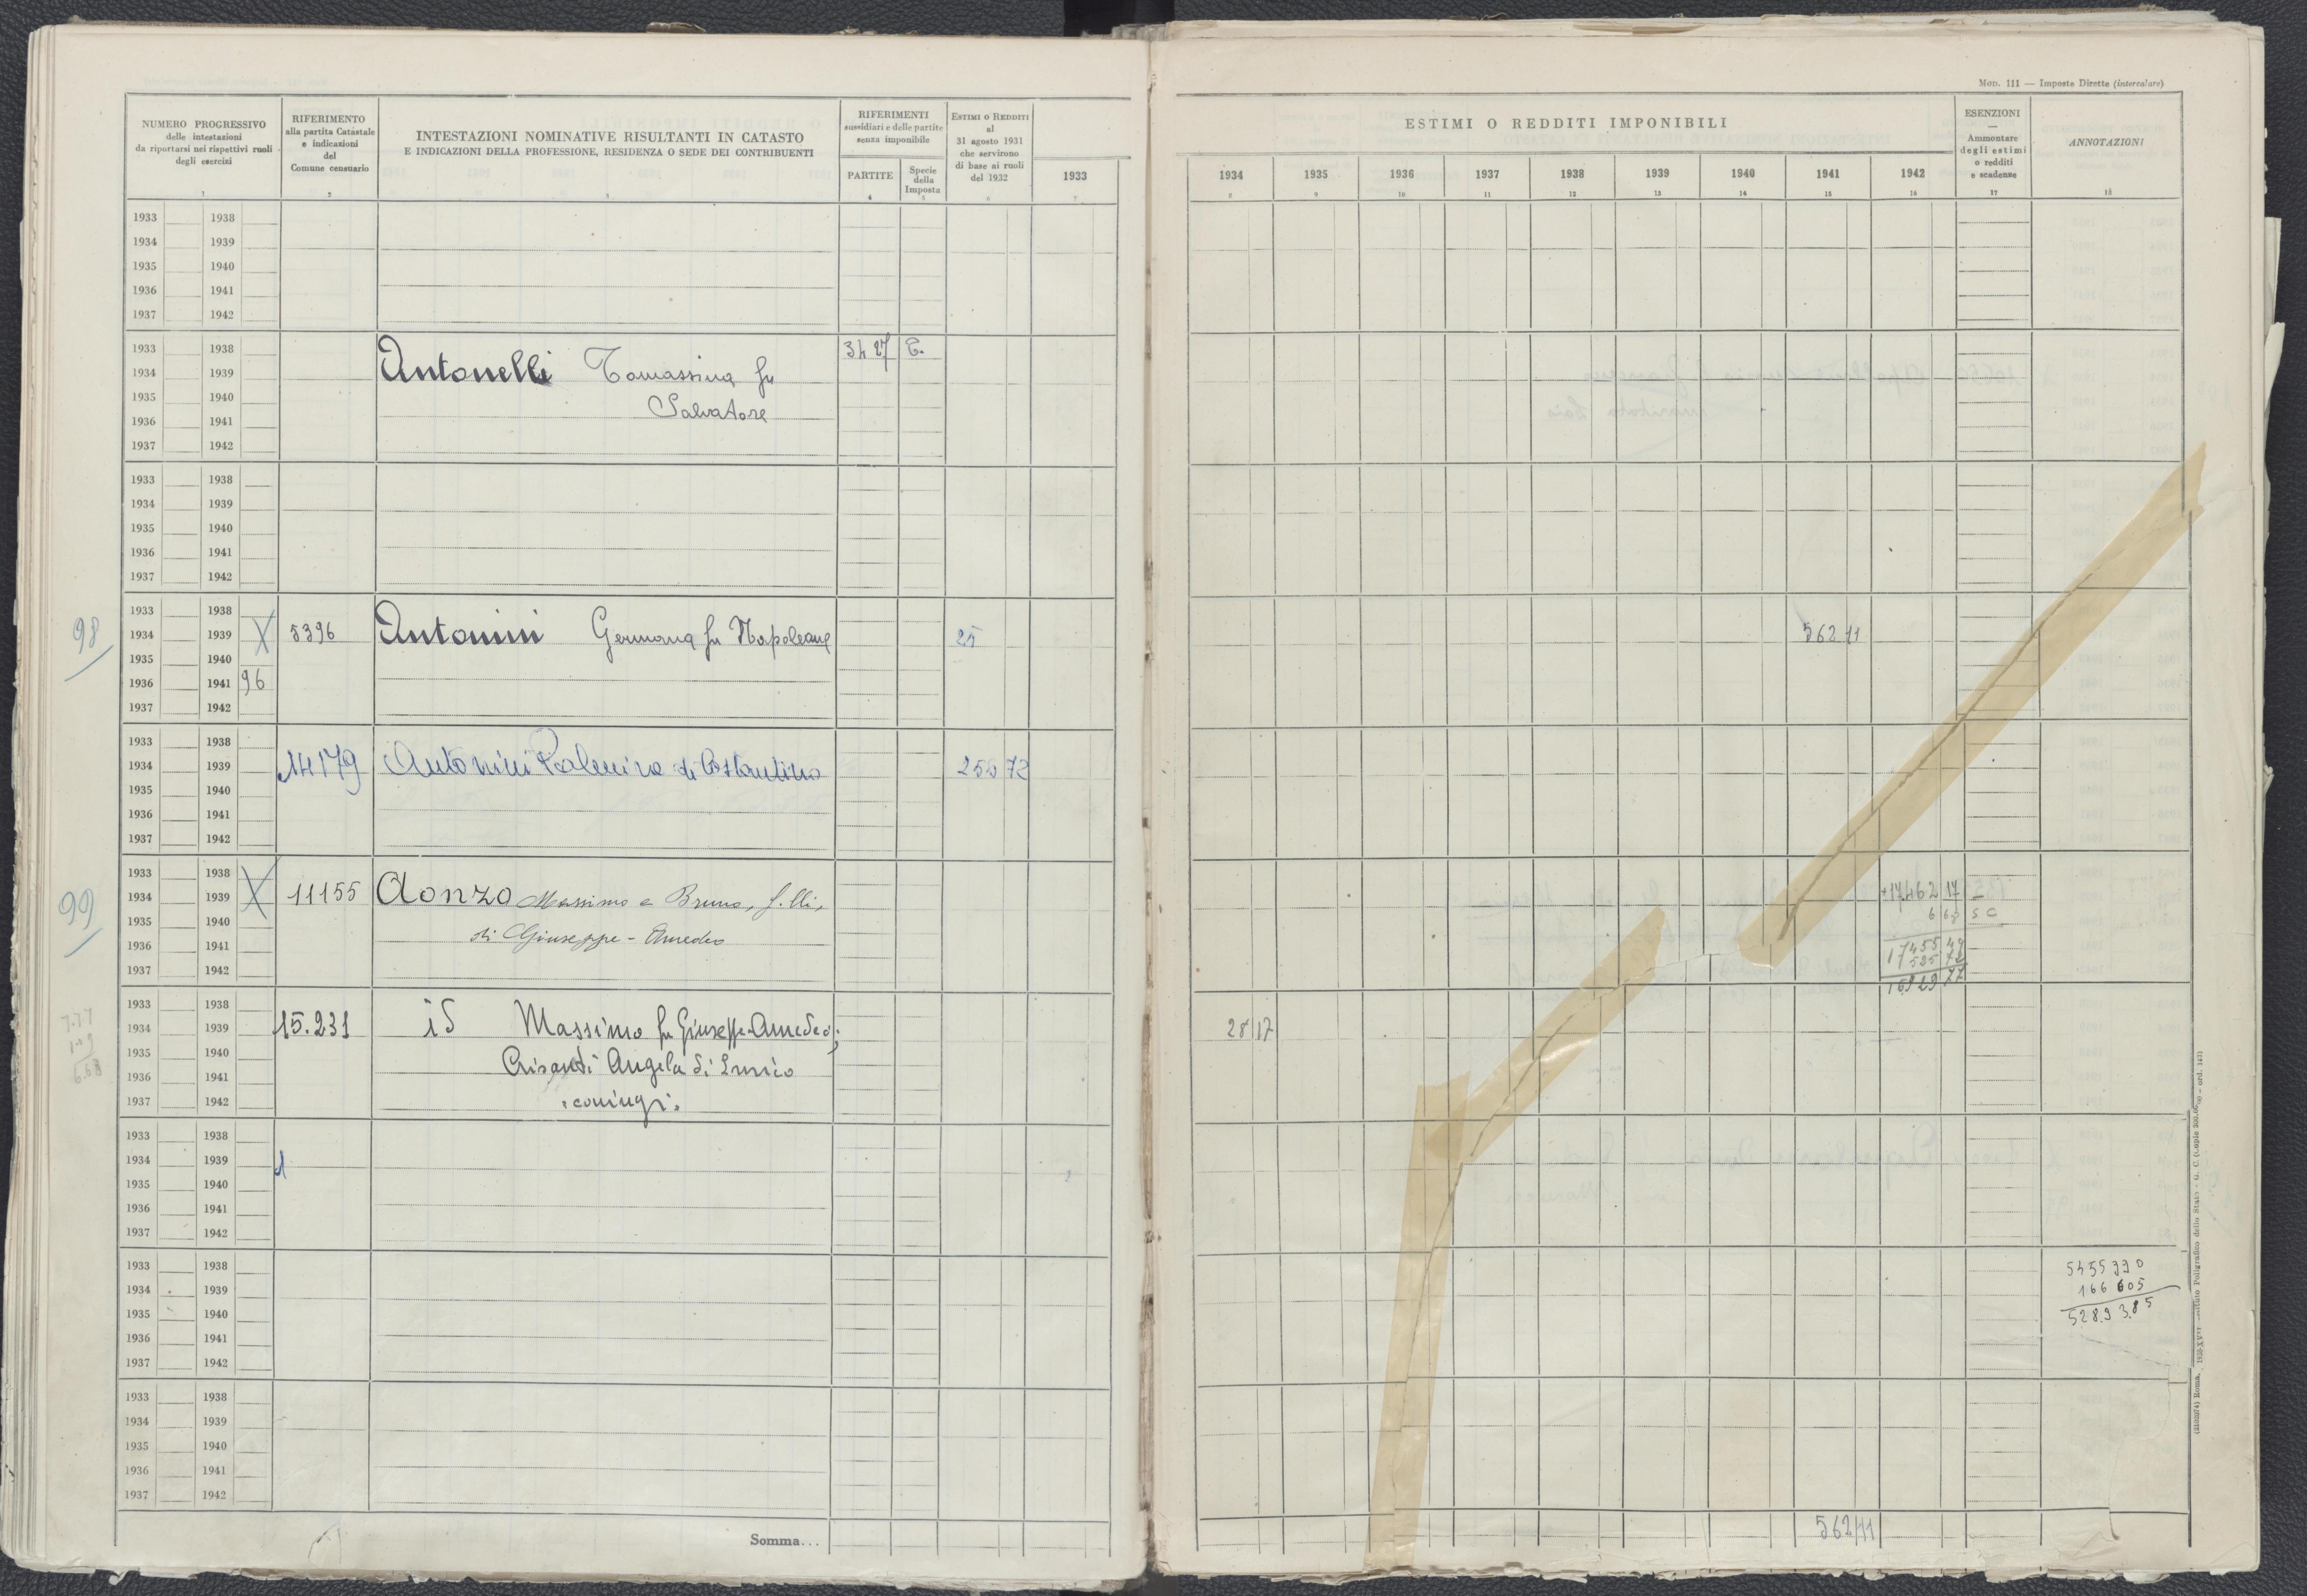 Mod. 111 — Imposte Dirette (intercalare)
NUMERO PROGRESSIVO
delle intestazioni
da riportarsi nei rispettivi ruoli
degli esercizi
1
RIFERIMENTO
alla partita Catastale
e indicazioni
del
Comune censuario
2
INTESTAZIONI NOMINATIVE RISULTANTI IN CATASTO
E INDICAZIONI DELLA PROFESSIONE, RESIDENZA O SEDE DEI CONTRIBUENTI
3
RIFERIMENTI
sussidiari e delle partite
senza imponibile
PARTITE
4
Specie
della
Imposta
5
Estimi o Redditi
al
31 agosto 1931
che servirono
di base ai ruoli
del 1932
6
1933
7
ESTIMI O REDDITI IMPONIBILI
1934 1935 1936 1937 1938 1939 1940 1941 1942
8 9 10 11 12 13 14 15 16
ESENZIONI
—
Ammontare
degli estimi
o redditi
e scadenze
17
ANNOTAZIONI
18
1933 1938
1934 1939
1935 1940
1936 1941
1937 1942
1933 1938 3427 T.
1934 1939 Antonelli Tomassina fu
1935 1940 Salvatore
1936 1941
1937 1942
1933 1938
1934 1939
1935 1940
1936 1941
1937 1942
98
1933 1938
1934 1939 X 5396 Antonini Germana fu Napoleone 25 562 11
1935 1940
1936 1941 96
1937 1942
1933 1938
1934 1939 14179 Antonini Palmira di Costantino 256 72
1935 1940
1936 1941
1937 1942
99
1933 1938
1934 1939 X 11155 Aonzo Massimo e Bruno, f.lli, +17.462 17
1935 1940 6 68 S C
1936 1941 di Giuseppe-Amedeo 17455 49
525 72
1937 1942
16929 77
1933 1938
7.77
1934 1939 15.231 id Massimo fu Giuseppe-Amedeo; 28 17
1 09
1935 1940
6.68
1936 1941 Angela di Ennio
1937 1942 coniugi.
1933 1938
1934 1939 1
1935 1940
1936 1941
1937 1942
1933 1938 5455990
1934 1939 166605
1935 1940 5289385
1936 1941
1937 1942
1933 1938
1934 1939
1935 1940
1936 1941
1937 1942
Somma... 562 11